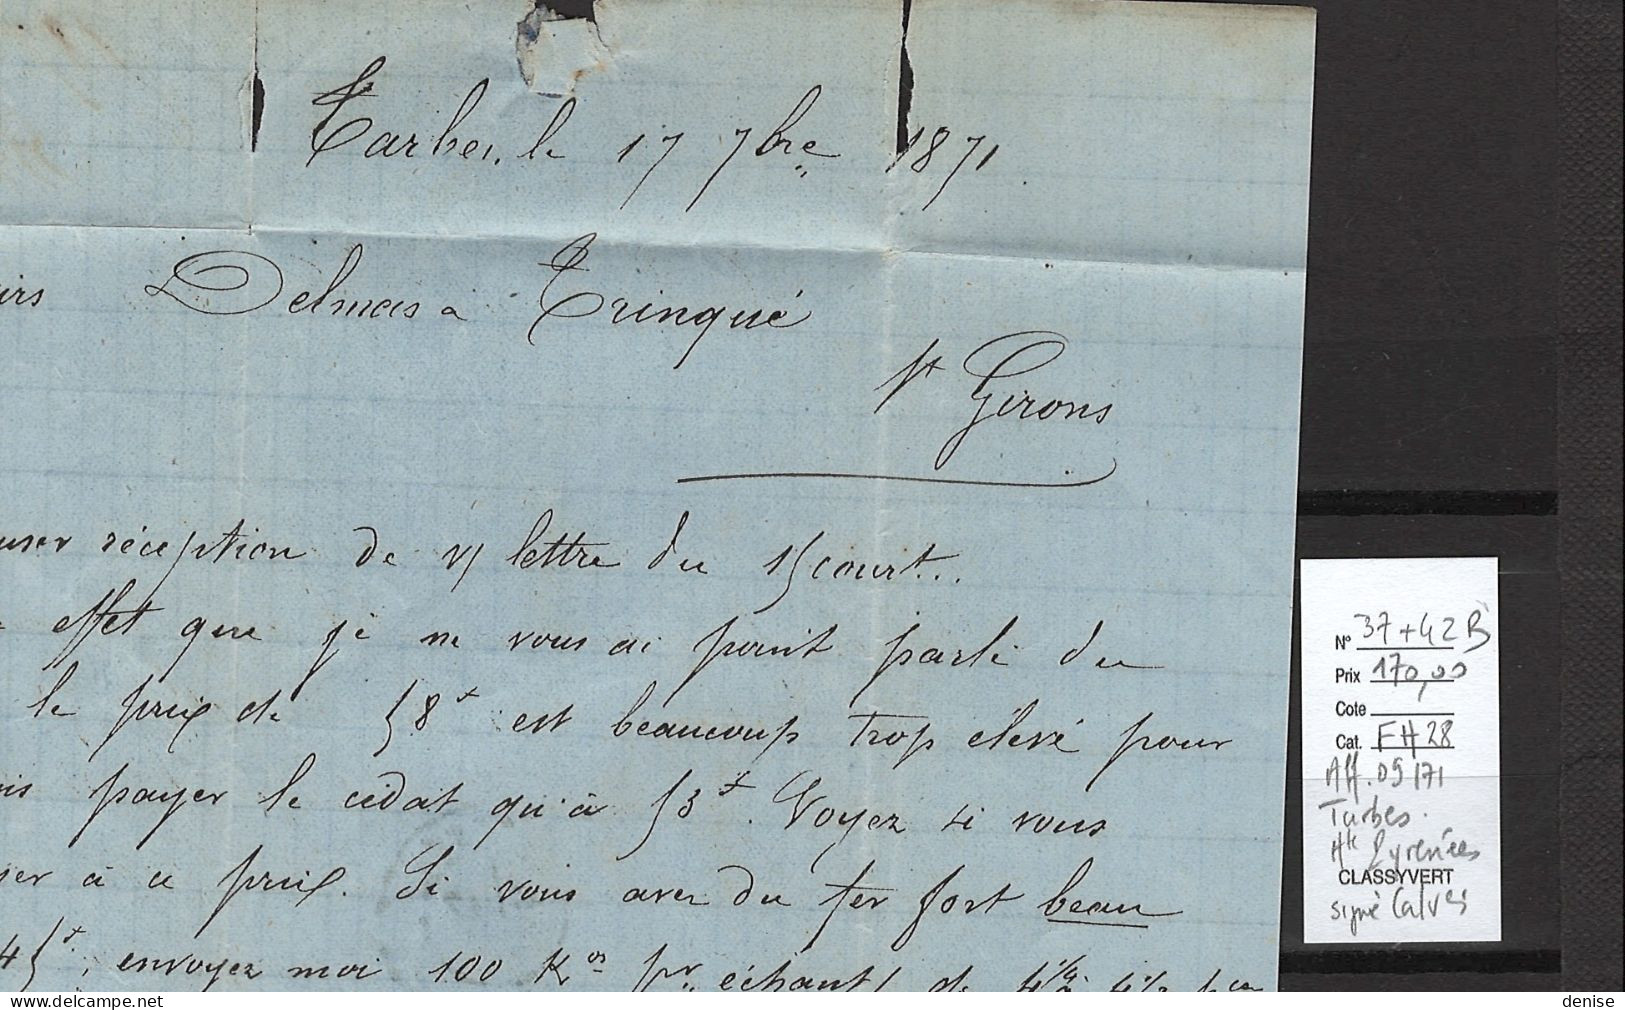 Tarbes, le 17 7bre 1871
Delmas a Trinqué
St Girons
réception de v/ lettre du 15 court...
effet que je ne vous ai point parlé du
le prix de 58+ est beaucoup trop élevé pour
payer le cédat qu'à 53+. Voyez si vous
à ce prix. Si vous avez du fer fort beau
45+, envoyez moi 100 Kos pr échantl de 4 1/4 à 4 1/2
N° 37+42B
Prix 170,00
Cote
Cat. FH28
Aff. 09/71
Tarbes.
Hte Pyrénées
CLASSYVERT
signé Calves
denise